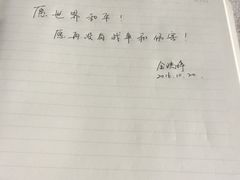 愿世界和平！
愿再没有战争和伤害！
金
2016.10.20.